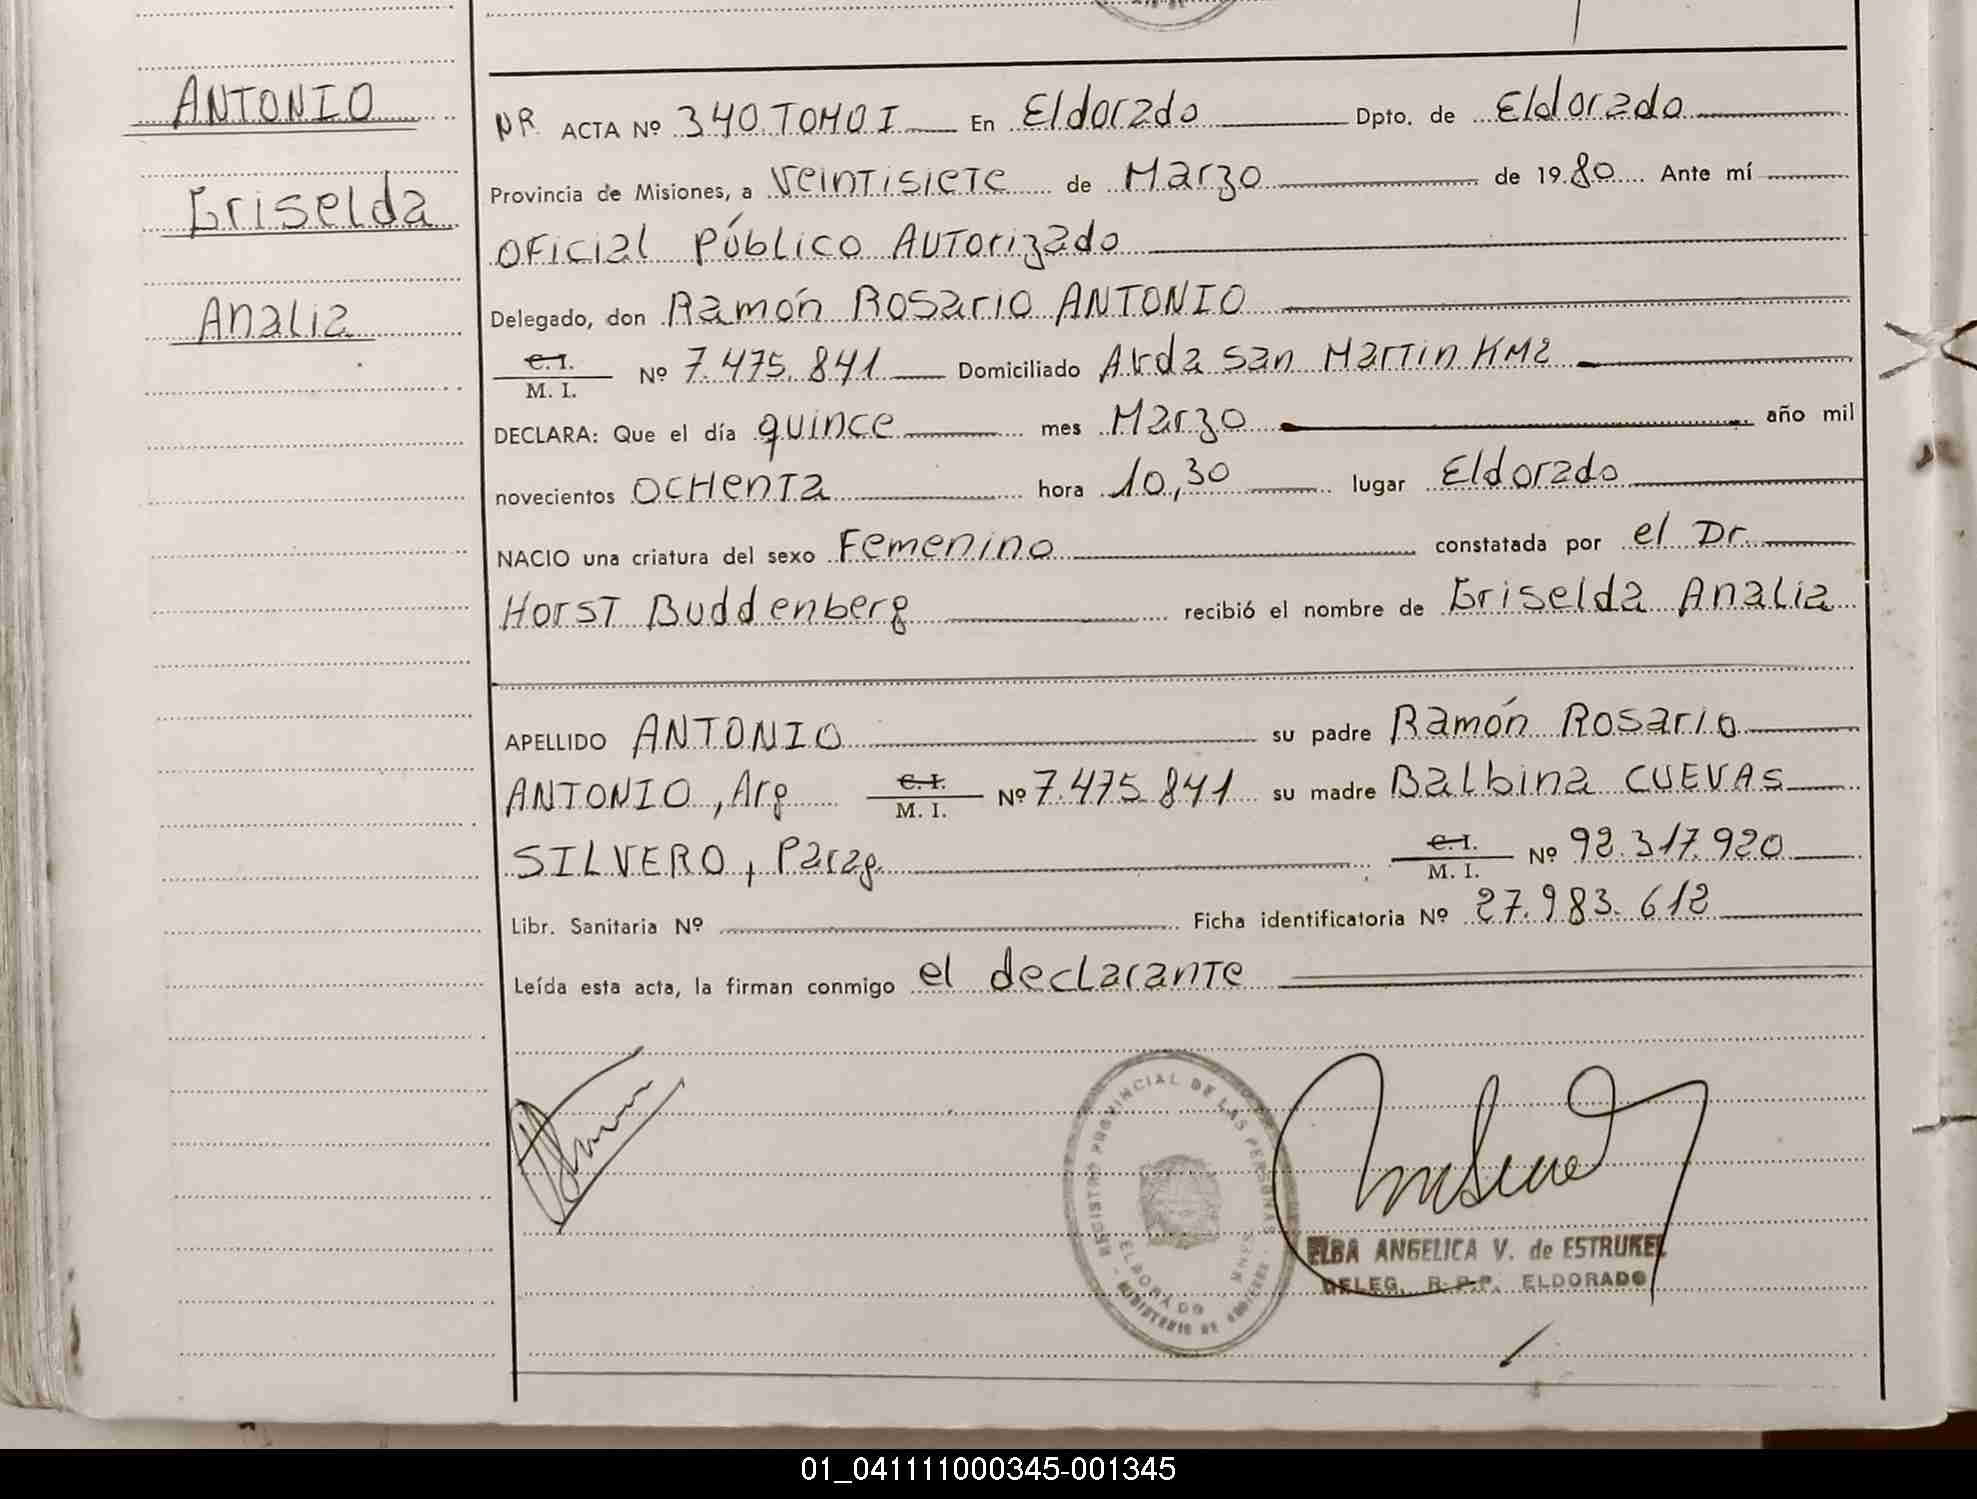 ANTONIO
Griselda
Analia
NR ACTA Nº 340 TOMO I En Eldorado Dpto. de Eldorado
Provincia de Misiones, a veintisiete de Marzo de 1980 Ante mí
Oficial Público Autorizado
Delegado, don Ramón Rosario ANTONIO
C. I. M. I. Nº 7.475.841 Domiciliado Avda San Martin KM2
DECLARA: Que el día quince mes Marzo año mil
novecientos ochenta hora 10,30 lugar Eldorado
NACIO una criatura del sexo Femenino constatada por el Dr.
Horst Buddenberg recibió el nombre de Griselda Analia
APELLIDO ANTONIO su padre Ramón Rosario
ANTONIO, Arg C. I. M. I. Nº 7.475.841 su madre Balbina CUEVAS
SILVERO, Parag. C. I. M. I. Nº 92.317.920
Libr. Sanitaria Nº Ficha identificatoria Nº 27.983.612
Leída esta acta, la firman conmigo el declarante
REGISTRO PROVINCIAL DE LAS PERSONAS
ELDORADO MNES
MINISTERIO DE GOBIERNO
ELBA ANGELICA V. de ESTRUKEL
DELEG. R.P.P. ELDORADO
01_041111000345-001345